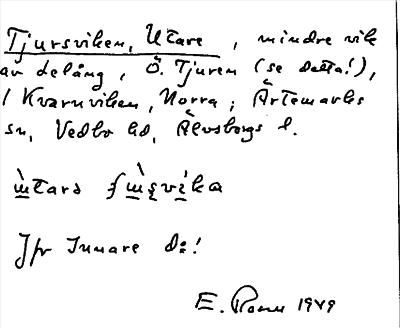 Tjursviken, Utare, mindre vik
av delång, Ö. Tjuren (se detta!),
i Kvarnviken, Norra; Ärtemarks
sn, Vedbo hd, Älvsborgs l.
Jfr Innare d:!
E. 1949